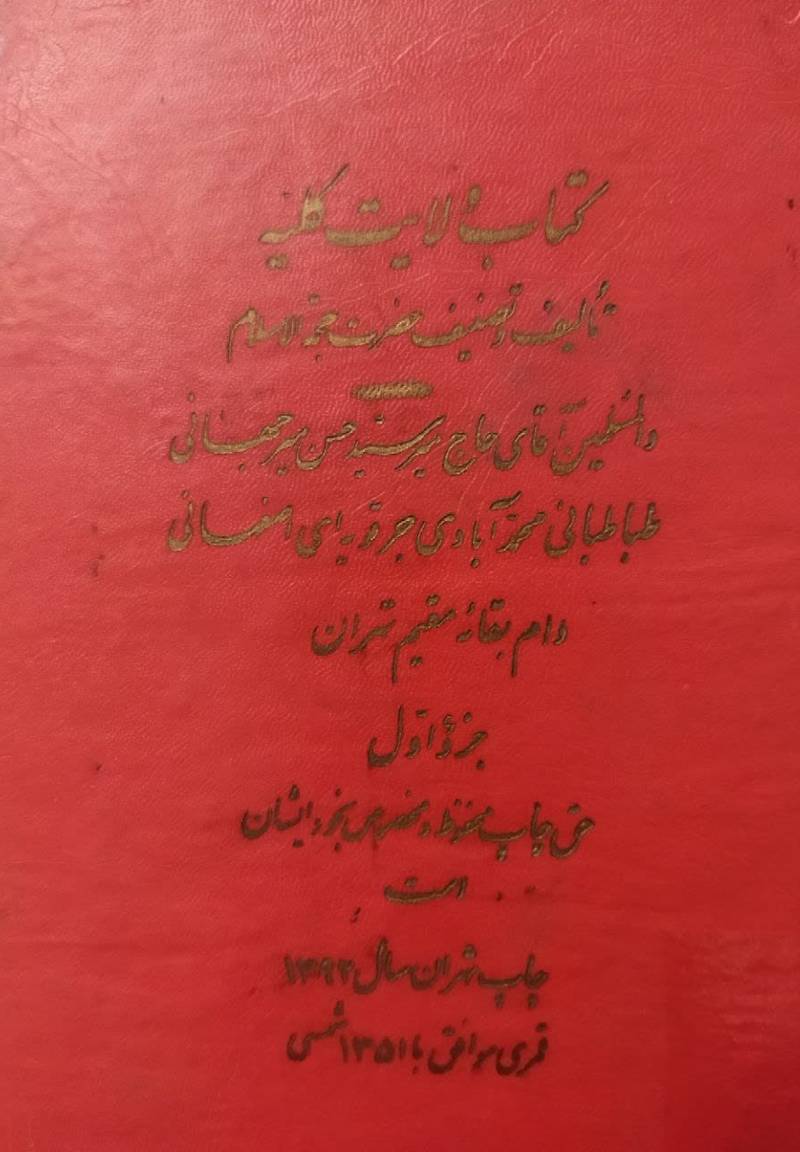 کتاب ولایت کلیه
تألیف و تصنیف حضرت حجة الاسلام
والمسلمین آقای حاج میر سید حسن میرجهانی
طباطبائی محمدآبادی جرقویه‌ای اصفهانی
دام بقائه مقیم تهران
جزؤ اول
حق چاپ محفوظ و مخصوص بخود ایشان
است
چاپ تهران سال ۱۳۹۲
قمری موافق با ۱۳۵۱ شمسی